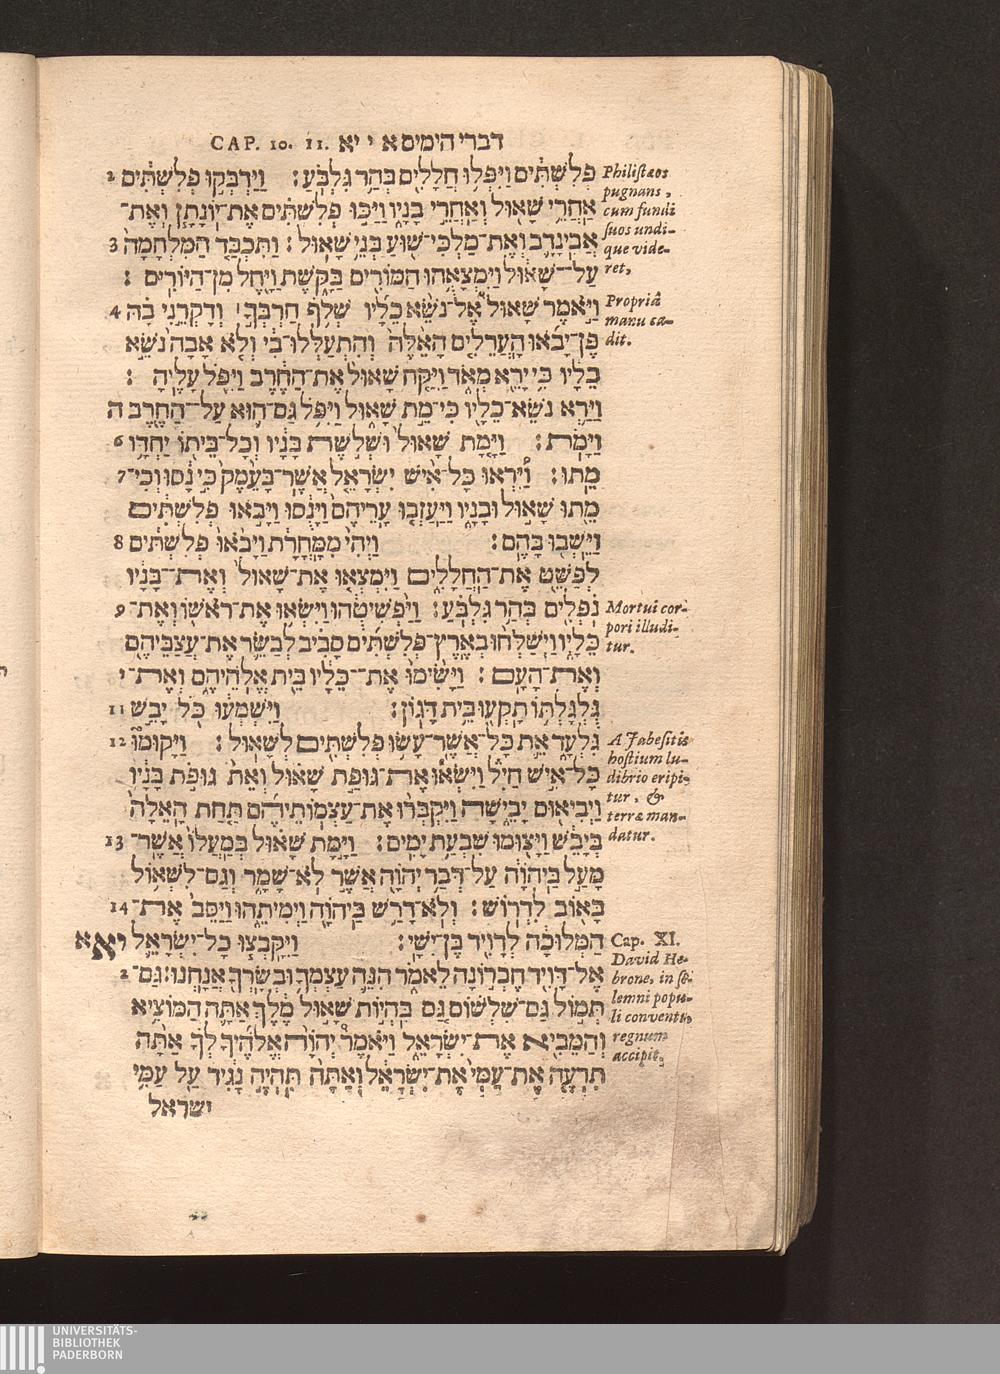 דברי הימים א י יא CAP. 10. 11.
פְלִשְׁתִּים וַיִּפְּלוּ חֲלָלִים בְּהַר גִּלְבֹּעַ: וַיַּדְבְּקוּ פְלִשְׁתִּים 2
אַחֲרֵי שָׁאוּל וְאַחֲרֵי בָנָיו וַיַּכּוּ פְלִשְׁתִּים אֶת־יוֹנָתָן וְאֶת־
אֲבִינָדָב וְאֶת־מַלְכִּי־שׁוּעַ בְּנֵי שָׁאוּל: וַתִּכְבַּד הַמִּלְחָמָה 3
עַל־שָׁאוּל וַיִּמְצָאֻהוּ הַמּוֹרִים בַּקָּשֶׁת וַיָּחֶל מִן־הַיּוֹרִים:
וַיֹּאמֶר שָׁאוּל אֶל־נֹשֵׂא כֵלָיו שְׁלֹף חַרְבְּךָ וְדָקְרֵנִי בָהּ 4
פֶּן־יָבֹאוּ הָעֲרֵלִים הָאֵלֶּה וְהִתְעַלְּלוּ־בִי וְלֹא אָבָה נֹשֵׂא
כֵלָיו כִּי יָרֵא מְאֹד וַיִּקַּח שָׁאוּל אֶת־הַחֶרֶב וַיִּפֹּל עָלֶיהָ:
וַיַּרְא נֹשֵׂא־כֵלָיו כִּי־מֵת שָׁאוּל וַיִּפֹּל גַּם־הוּא עַל־הַחֶרֶב ה
וַיָּמֹת: וַיָּמָת שָׁאוּל וּשְׁלֹשֶׁת בָּנָיו וְכָל־בֵּיתוֹ יַחְדָּו 6
מֵתוּ: וַיִּרְאוּ כָּל־אִישׁ יִשְׂרָאֵל אֲשֶׁר־בָּעֵמֶק כִּי נָסוּ וְכִי־ 7
מֵתוּ שָׁאוּל וּבָנָיו וַיַּעַזְבוּ עָרֵיהֶם וַיָּנֻסוּ וַיָּבֹאוּ פְלִשְׁתִּים
וַיֵּשְׁבוּ בָּהֶם: וַיְהִי מִמָּחֳרָת וַיָּבֹאוּ פְלִשְׁתִּים 8
לְפַשֵּׁט אֶת־הַחֲלָלִים וַיִּמְצְאוּ אֶת־שָׁאוּל וְאֶת־בָּנָיו
נֹפְלִים בְּהַר גִּלְבֹּעַ: וַיַּפְשִׁיטֻהוּ וַיִּשְׂאוּ אֶת־רֹאשׁוֹ וְאֶת־ 9
כֵּלָיו וַיְשַׁלְּחוּ בְאֶרֶץ־פְּלִשְׁתִּים סָבִיב לְבַשֵּׂר אֶת־עֲצַבֵּיהֶם
וְאֶת־הָעָם: וַיָּשִׂימוּ אֶת־כֵּלָיו בֵּית אֱלֹהֵיהֶם וְאֶת־ י
גֻּלְגָּלְתּוֹ תָקְעוּ בֵּית דָּגוֹן: וַיִּשְׁמְעוּ כֹּל יָבֵשׁ 11
גִּלְעָד אֵת כָּל־אֲשֶׁר־עָשׂוּ פְלִשְׁתִּים לְשָׁאוּל: וַיָּקוּמוּ 12
כָּל־אִישׁ חַיִל וַיִּשְׂאוּ אֶת־גּוּפַת שָׁאוּל וְאֵת גּוּפֹת בָּנָיו
וַיְבִיאוּם יָבֵישָׁה וַיִּקְבְּרוּ אֶת־עַצְמוֹתֵיהֶם תַּחַת הָאֵלָה
בְּיָבֵשׁ וַיָּצוּמוּ שִׁבְעַת יָמִים: וַיָּמָת שָׁאוּל בְּמַעֲלוֹ אֲשֶׁר־ 13
מָעַל בַּיהוָה עַל־דְּבַר יְהוָה אֲשֶׁר לֹא־שָׁמָר וְגַם־לִשְׁאוֹל
בָּאוֹב לִדְרוֹשׁ: וְלֹא־דָרַשׁ בַּיהוָה וַיְמִיתֵהוּ וַיַּסֵּב אֶת־ 14
הַמְּלוּכָה לְדָוִיד בֶּן־יִשָׁי: וַיִּקָּבְצוּ כָל־יִשְׂרָאֵל יא א
אֶל־דָּוִיד חֶבְרוֹנָה לֵאמֹר הִנֵּה עַצְמְךָ וּבְשָׂרְךָ אֲנָחְנוּ: גַּם־ 2
תְּמוֹל גַּם־שִׁלְשׁוֹם גַּם בִּהְיוֹת שָׁאוּל מֶלֶךְ אַתָּה הַמּוֹצִיא
וְהַמֵּבִיא אֶת־יִשְׂרָאֵל וַיֹּאמֶר יְהוָה אֱלֹהֶיךָ לְךָ אַתָּה
תִרְעֶה אֶת־עַמִּי אֶת־יִשְׂרָאֵל וְאַתָּה תִּהְיֶה נָגִיד עַל עַמִּי
ישראל
Philistæos
pugnans,
cum fundi
suos undi-
que vide-
ret,
Propriâ
manu ca-
dit.
Mortui cor-
pori illudi-
tur.
A Jabesitis
hostium lu-
dibrio eripi-
tur, &
terræ man-
datur.
Cap. XI.
David He-
brone, in so-
lemni popu-
li conventu,
regnum
accipit,
UNIVERSITÄTS-
BIBLIOTHEK
PADERBORN